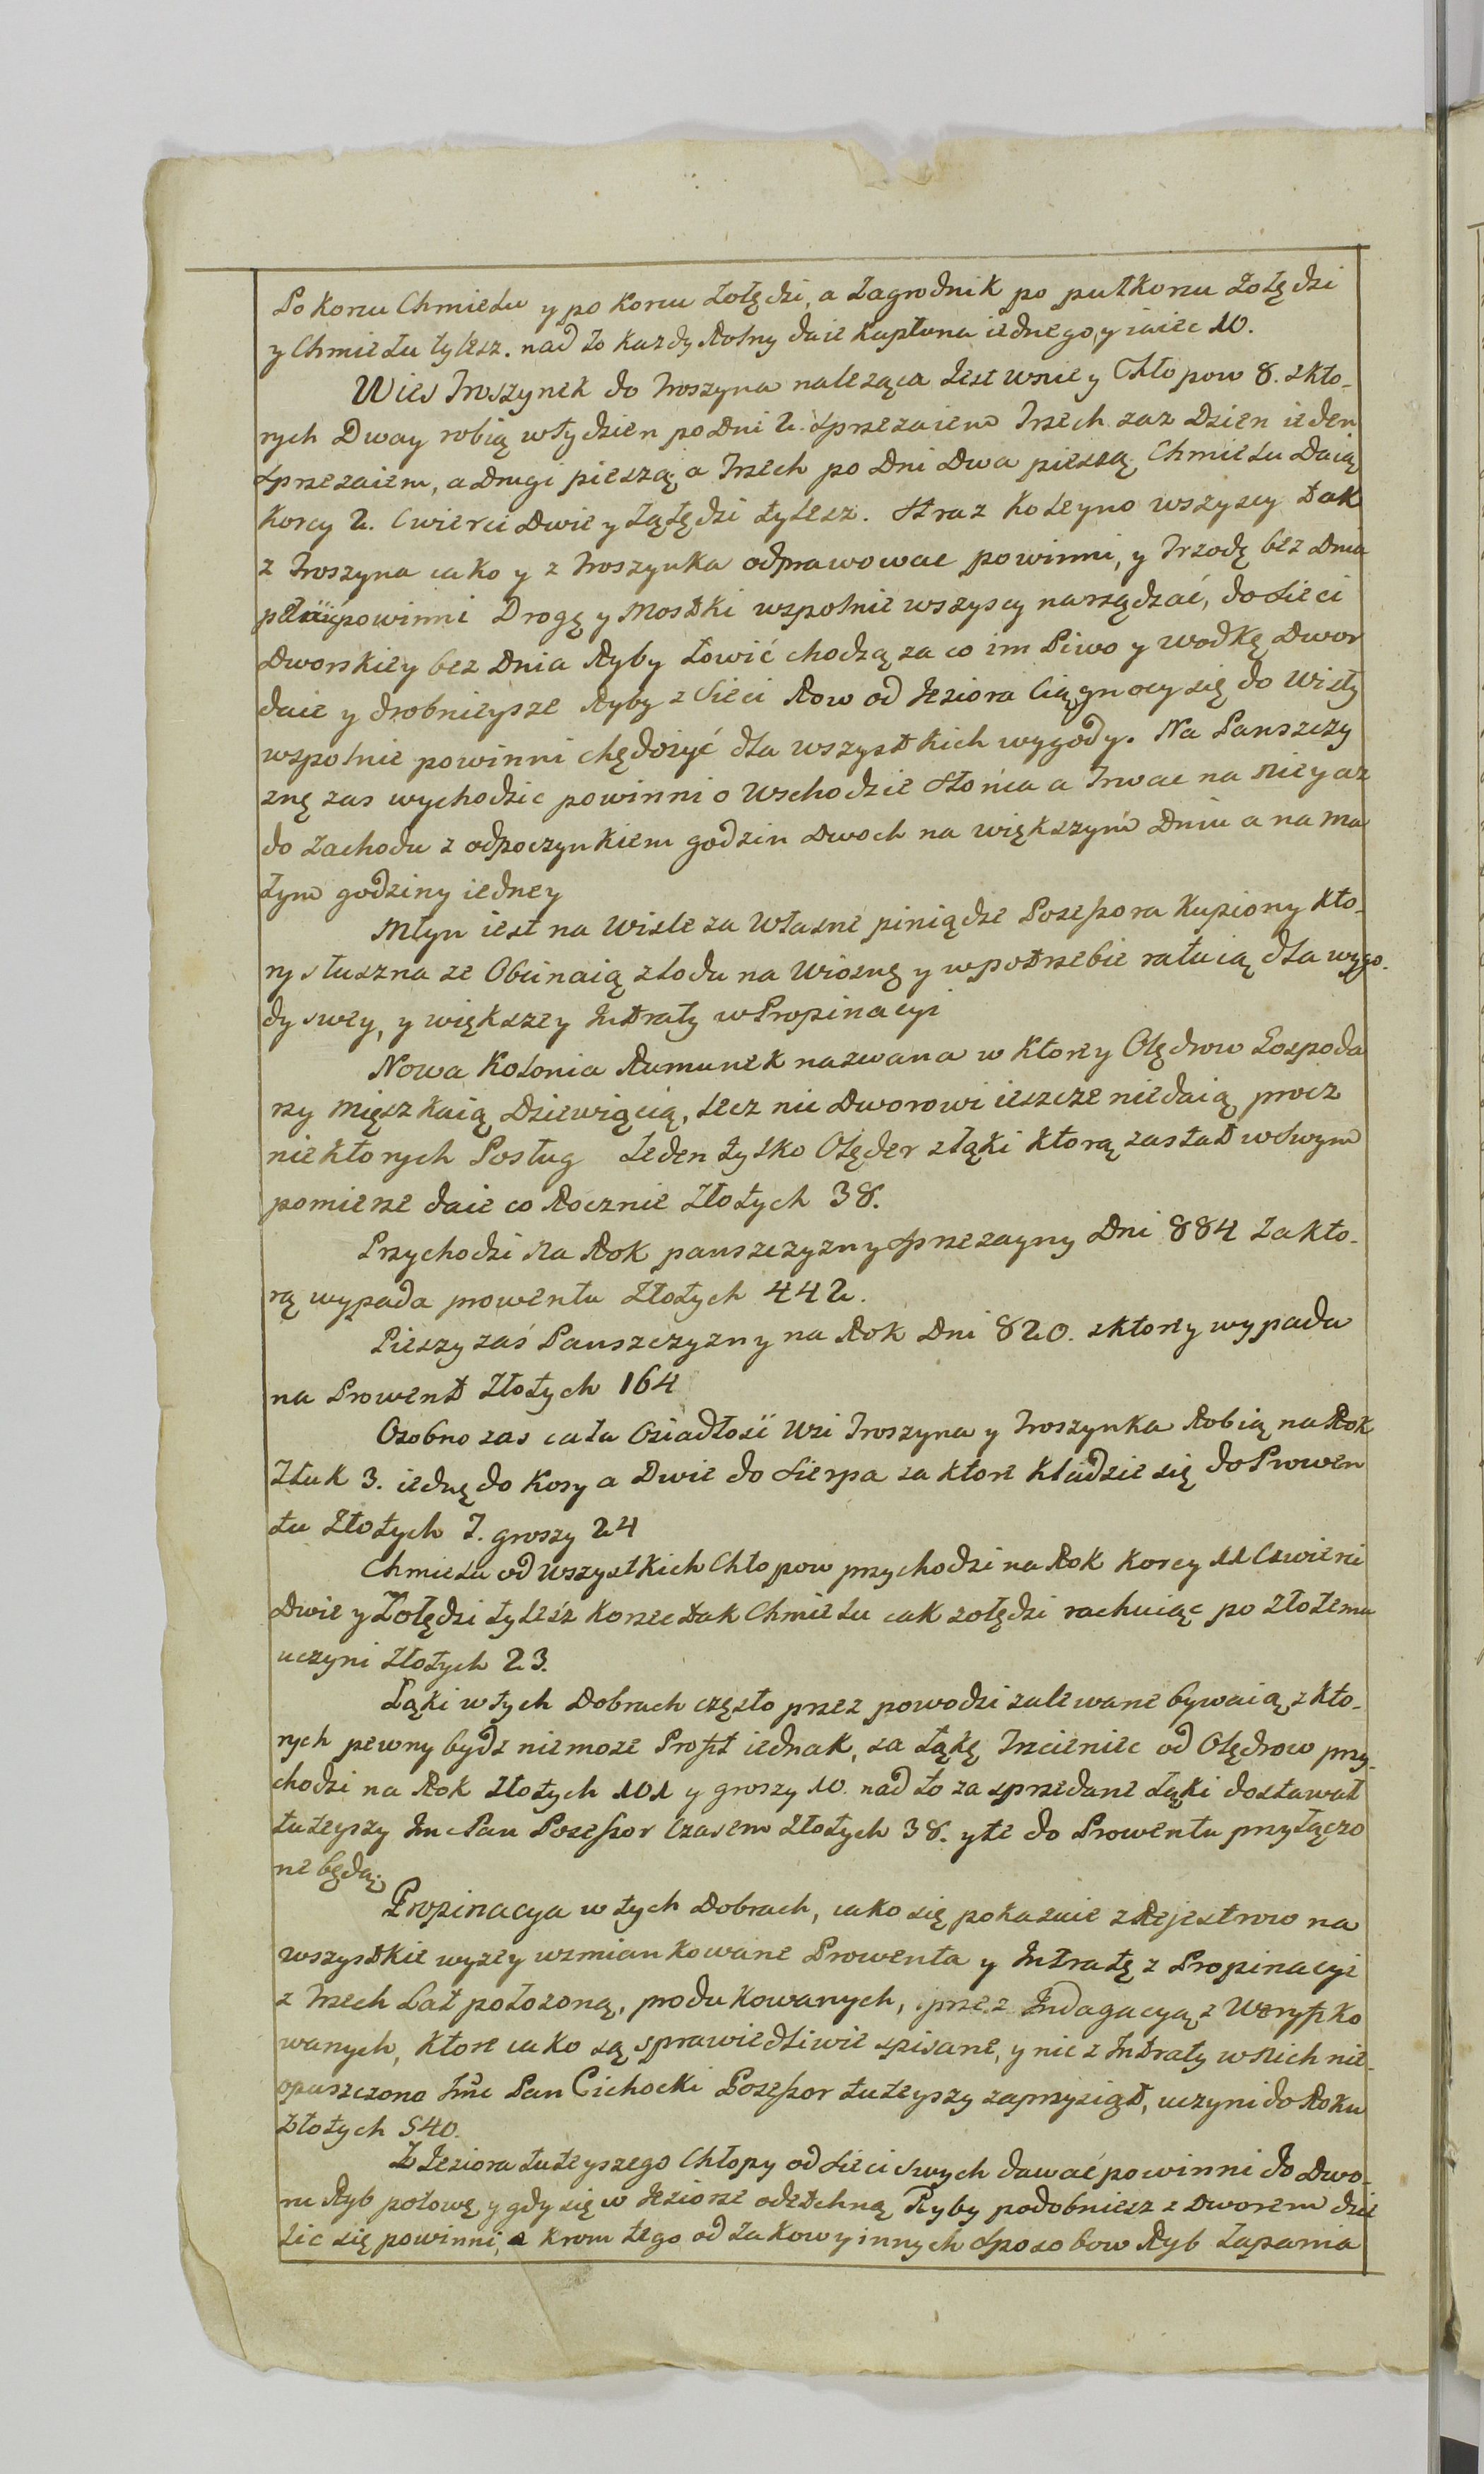 Po korcu Chmielu y po korcu Zołędzi, a Zagrodnik po pułkorcu Zołędzi
y Chmielu tylesz. nad to kazdy Rolny daie kapłuna iednego, y iaiec 10.
Wies Troszynek do Troszyna naleząca Jest wniey Chłopow 8. zkto-
rych Dway robią wtydzien po Dni 2. Sprzezaiem Trzech zas Dzien ieden
Sprzezaiem, a drugi pieszą, a Trzech po Dni Dwa pieszą Chmielu Daią
korcy 2. Cwierci Dwie y Zołędzi tylesz. Straz koleyno wszyscy tak
z Troszyna iako y z Troszynka odprawowac powinni, y Trzodę bez Dnia
powinni Drogę y Mostki wspolnie wszyscy narządzać, do Sieci
Dworskiey bez Dnia Ryby Łowić chodzą za co im Piwo y wodkę Dwor
daie y drobnieysze Ryby z Sieci Row od Jeziora Ciągnący się do Wisły
wspolnie powinni chędożyć dla wszystkich wygody. Na Panszczy
znę zas wychodzic powinni o Wschodzie Słońca a Trwac na Niey az
do Zachodu z odpoczynkiem godzin Dwoch na większym Dniu a na ma
łym godziny iedney
Młyn iest na Wisle za Własne piniądze Posessora kupiony kto-
ry słuszna ze Obcinaią z Lodu na Wiosnę y wpotrzebie ratuią dla wygo-
dy swey, y większey Intraty w Propinacyi
Nowa kolonia Rumunek nazwana w ktorey Olędrow Gospoda
rzy Mięszkaią Dziewięcią, lecz nic Dworowi ieszcze niedaią procz
niektorych Posług Jeden tylko Olęder złąki ktorą zastał wSwym
pomierze daie co Rocznie Złotych 38.
Przychodzi Na Rok panszczyzny Sprzezayny Dni 884 za kto-
rą wypada prowentu Złotych 442.
Pieszy zaś Panszczyzny na Rok Dni 820. zktorey wypada
na Prowent Złotych 164
Osobno zas cała Osiadłość Wsi Troszyna y Troszynka Robią na Rok
Tłuk 3. iednę do kosy a Dwie do Sierpa za ktore kładzie się do Prowen
tu Złotych 7. groszy 24
Chmielu od Wszystkich Chłopow przychodzi na Rok korcy 11 Cwierci
Dwie y Zołędzi tyleśz korzec tak Chmielu iak zołędzi rachuiąc po Złotemu
uczyni Złotych 23.
Łąki w tych Dobrach często przez powodzi zalewane bywaią, z kto-
rych pewny bydz niemoze Profit iednak, za łąkę Trzcieniec od Olędrow przy-
chodzi na Rok Złotych 101 y groszy 10. nad to za sprzedane Łąki dostawał
tuteyszy Imc Pan Posessor Czasem Złotych 38. yte do Prowentu przyłączo
ne będą.
Propinacya w tych Dobrach, iako się pokazuie z Rejestrow na
wszystkie wyzey wzmiankowane Prowenta y Intratę z Propinacyi
z Trzech Lat połozoną, produkowanych, przez Indagacyą z Weryfiko
wanych, ktore iako są sprawiedliwie spisane, y nic z Intraty w Nich nie-
opuszczono Imc Pan Cichocki Posessor tuteyszy zaprzysiągł, uczyni do Roku
Złotych 540.
Z Jeziora tuteyszego Chłopy od Sieci Swych dawać powinni do Dwo-
ru Ryb połowę, y gdy się w Jeziorze odetchną Ryby podobniesz z Dworem dzie
lic się powinni, a krom tego od Zakow y innych Sposobow Ryb Łapania